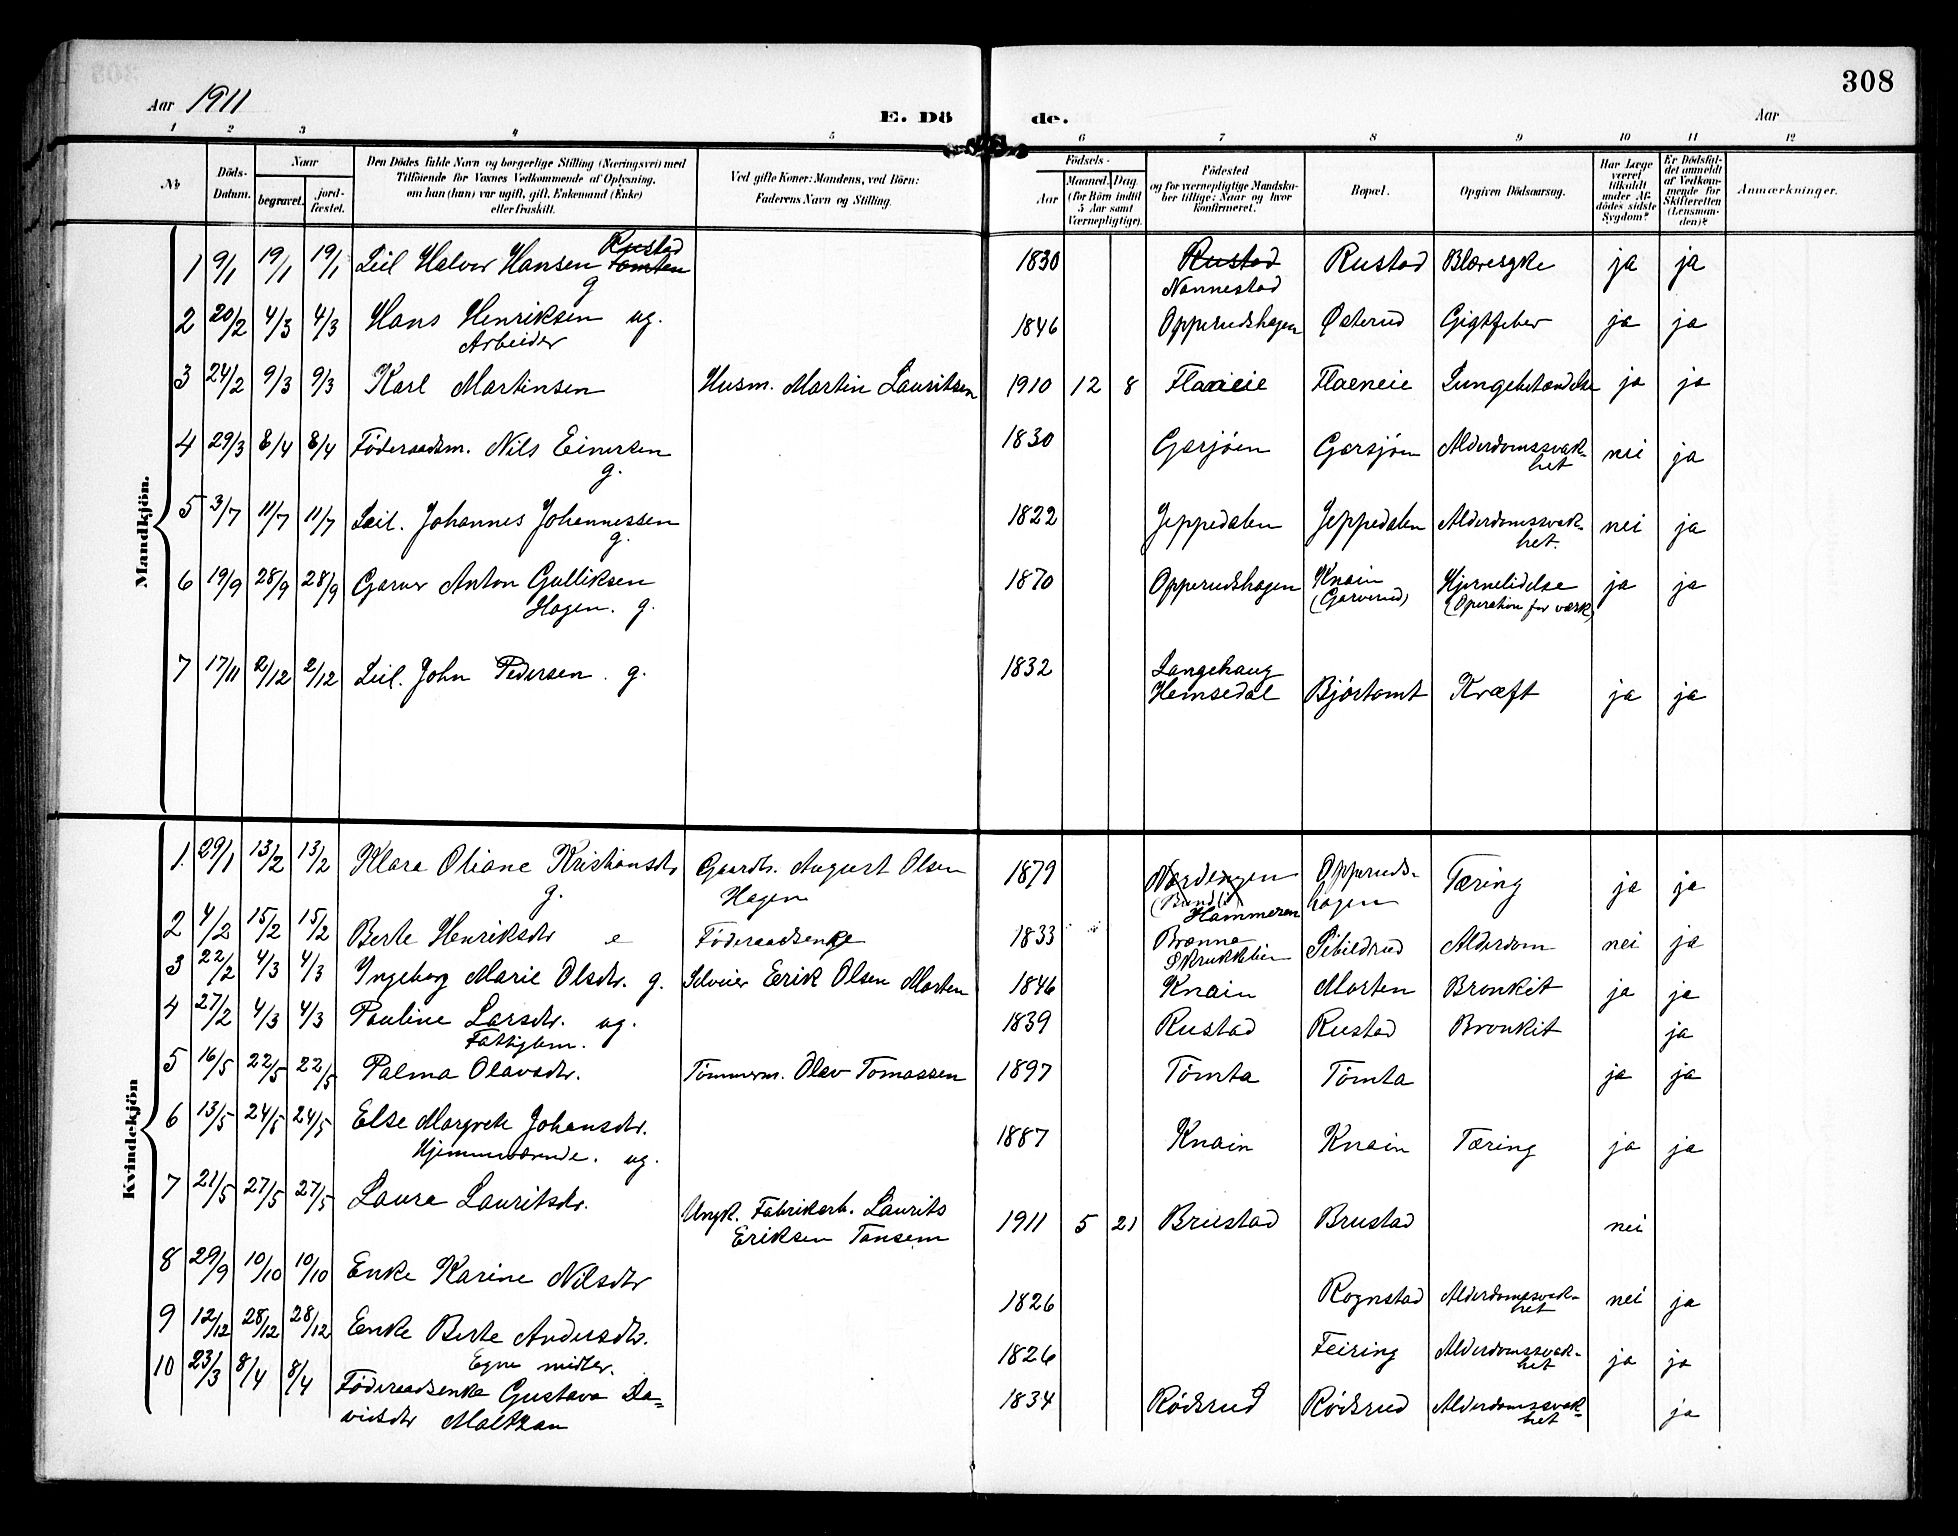 308
Aar 1911
E. Dö de.
Aar
1 2 3 4 5 6 7 8 9 10 11 12
No
Döds-
Datum.
Naar
begravet.
jord-
fæstet.
Den Dödes fulde Navn og borgerlige Stilling (Næringsvei) med
Tilföiende for Voxnes Vedkommende af Oplysning,
om han (hun) var ugift, gift, Enkemand (Enke)
eller fraskilt.
Ved gifte Koner: Mandens, ved Börn:
Faderens Navn og Stilling.
Födsels-
Aar
Maaned. Dag
(for Börn indtil
5 Aar samt
Værnepligtige).
Födested
og for værnepligtige Mandskaber tillige: Naar og hvor
konfirmeret.
Bopæl.
Opgiven Dödsaarsag.
Har Læge
været
tilkaldt
under Af-
dödes sidste
Sygdom?
Er Dödsfal-
det anmeldt
af Vedkom-
mende for
Skifteretten
(Lensman-
den)?
Anmærkninger.
Mandkjön.
1 9/1 19/1 19/1 Leil Halvor Hansen Rustad Tomten g 1830 Rustad Nannestad Rustad Blæresyke ja ja
2 20/2 4/3 4/3 Hans Henriksen ug. Arbeider 1846 Opperudshagen Østerud Gigtfeber ja ja
3 24/2 9/3 9/3 Karl Martinsen Husm. Martin Lauritsen 1910 12 8 Flaeneie Flaeneie Lungebetændelse ja ja
4 29/3 8/4 8/4 Föderaadsm. Nils Einersen g. 1830 Garsjöen Garsjöen Alderdomssvak-
het nei ja
5 3/7 11/7 11/7 Leil. Johannes Johannessen g. 1822 Jeppedalen Jeppedalen Alderdomssvak-
het. nei ja
6 19/9 28/9 28/9 Garver Anton Gulliksen
Hagen. g. 1870 Opperudshagen Knain
(Garverud) Hjernelidelse
(Operation for værk) ja ja
7 17/11 2/12 2/12 Leil. John Pedersen. g. 1832 Langehaug
Hemsedal Björtomt Kræft ja ja
Kvindekjön
1. 29/1 13/2 13/2 Klara Oliane Kristiansdtr g. Gaardbr. August Olsen
Hagen 1879 Nordengen
Hammeren Opperuds-
hagen Tæring ja ja
2 4/2 15/2 15/2 Berte Henriksdtr e Föderaadsenke 1833 Brænna
Skrukkelien Sibildrud Alderdom nei ja
3 22/2 4/3 4/3 Ingeborg Marie Olsdtr. g. Selveier Eerik Olsen Morten 1846 Knain Morten Bronkit ja ja
4 27/2 4/3 4/3 Pauline Larsdtr. ug.
Fattiglem. 1839 Rustad Rustad Bronkit ja
5 16/5 22/5 22/5 Palma Olavsdtr. Tömmerm. Olav Tomassen 1897 Tömta Tömta ja ja
6 13/5 24/5 24/5 Else Margrete Johansdtr.
Hjemmeværende. ug. 1887 Knain Knain Tæring ja ja
7 21/5 27/5 27/5 Laura Lauritsdtr. Ungk. Fabrikarb. Laurits
Eriksen Tansem 1911 5 21 Brustad Brustad nei
8 29/9 10/10 10/10 Enke Karine Nilsdtr 1826 Rognstad Alderdomssvak-
het nei ja
9 12/12 28/12 28/12 Enke Berte Andersdtr.
Egne midler. 1826 Feiring Alderdomssvak-
het ja ja
10 23/3 8/4 8/4 Föderaadsenke Gustava Da=
vidsdtr Maltzan 1834 Rödsrud Rödsrud Alderdomssvak-
het ja